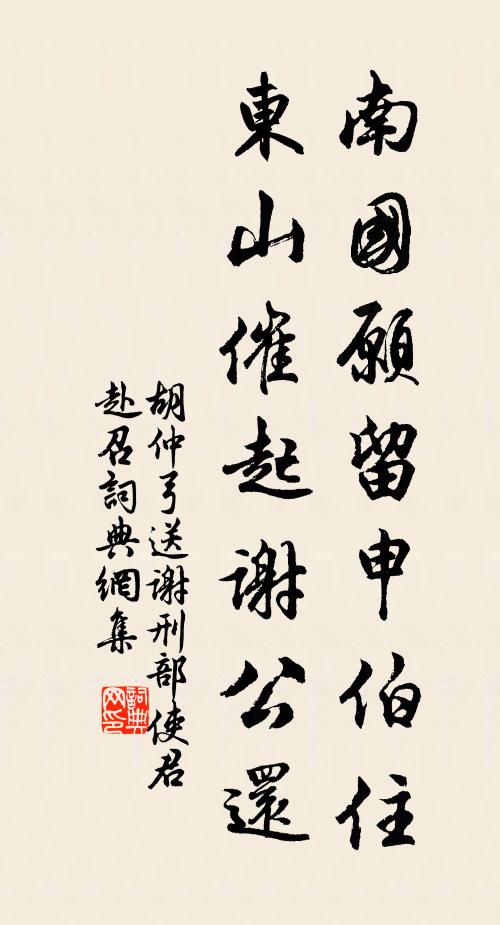 南國願留申伯住
東山催起謝公還
胡仲弓送謝刑部使君
赴召詞典網集
詞典
网印